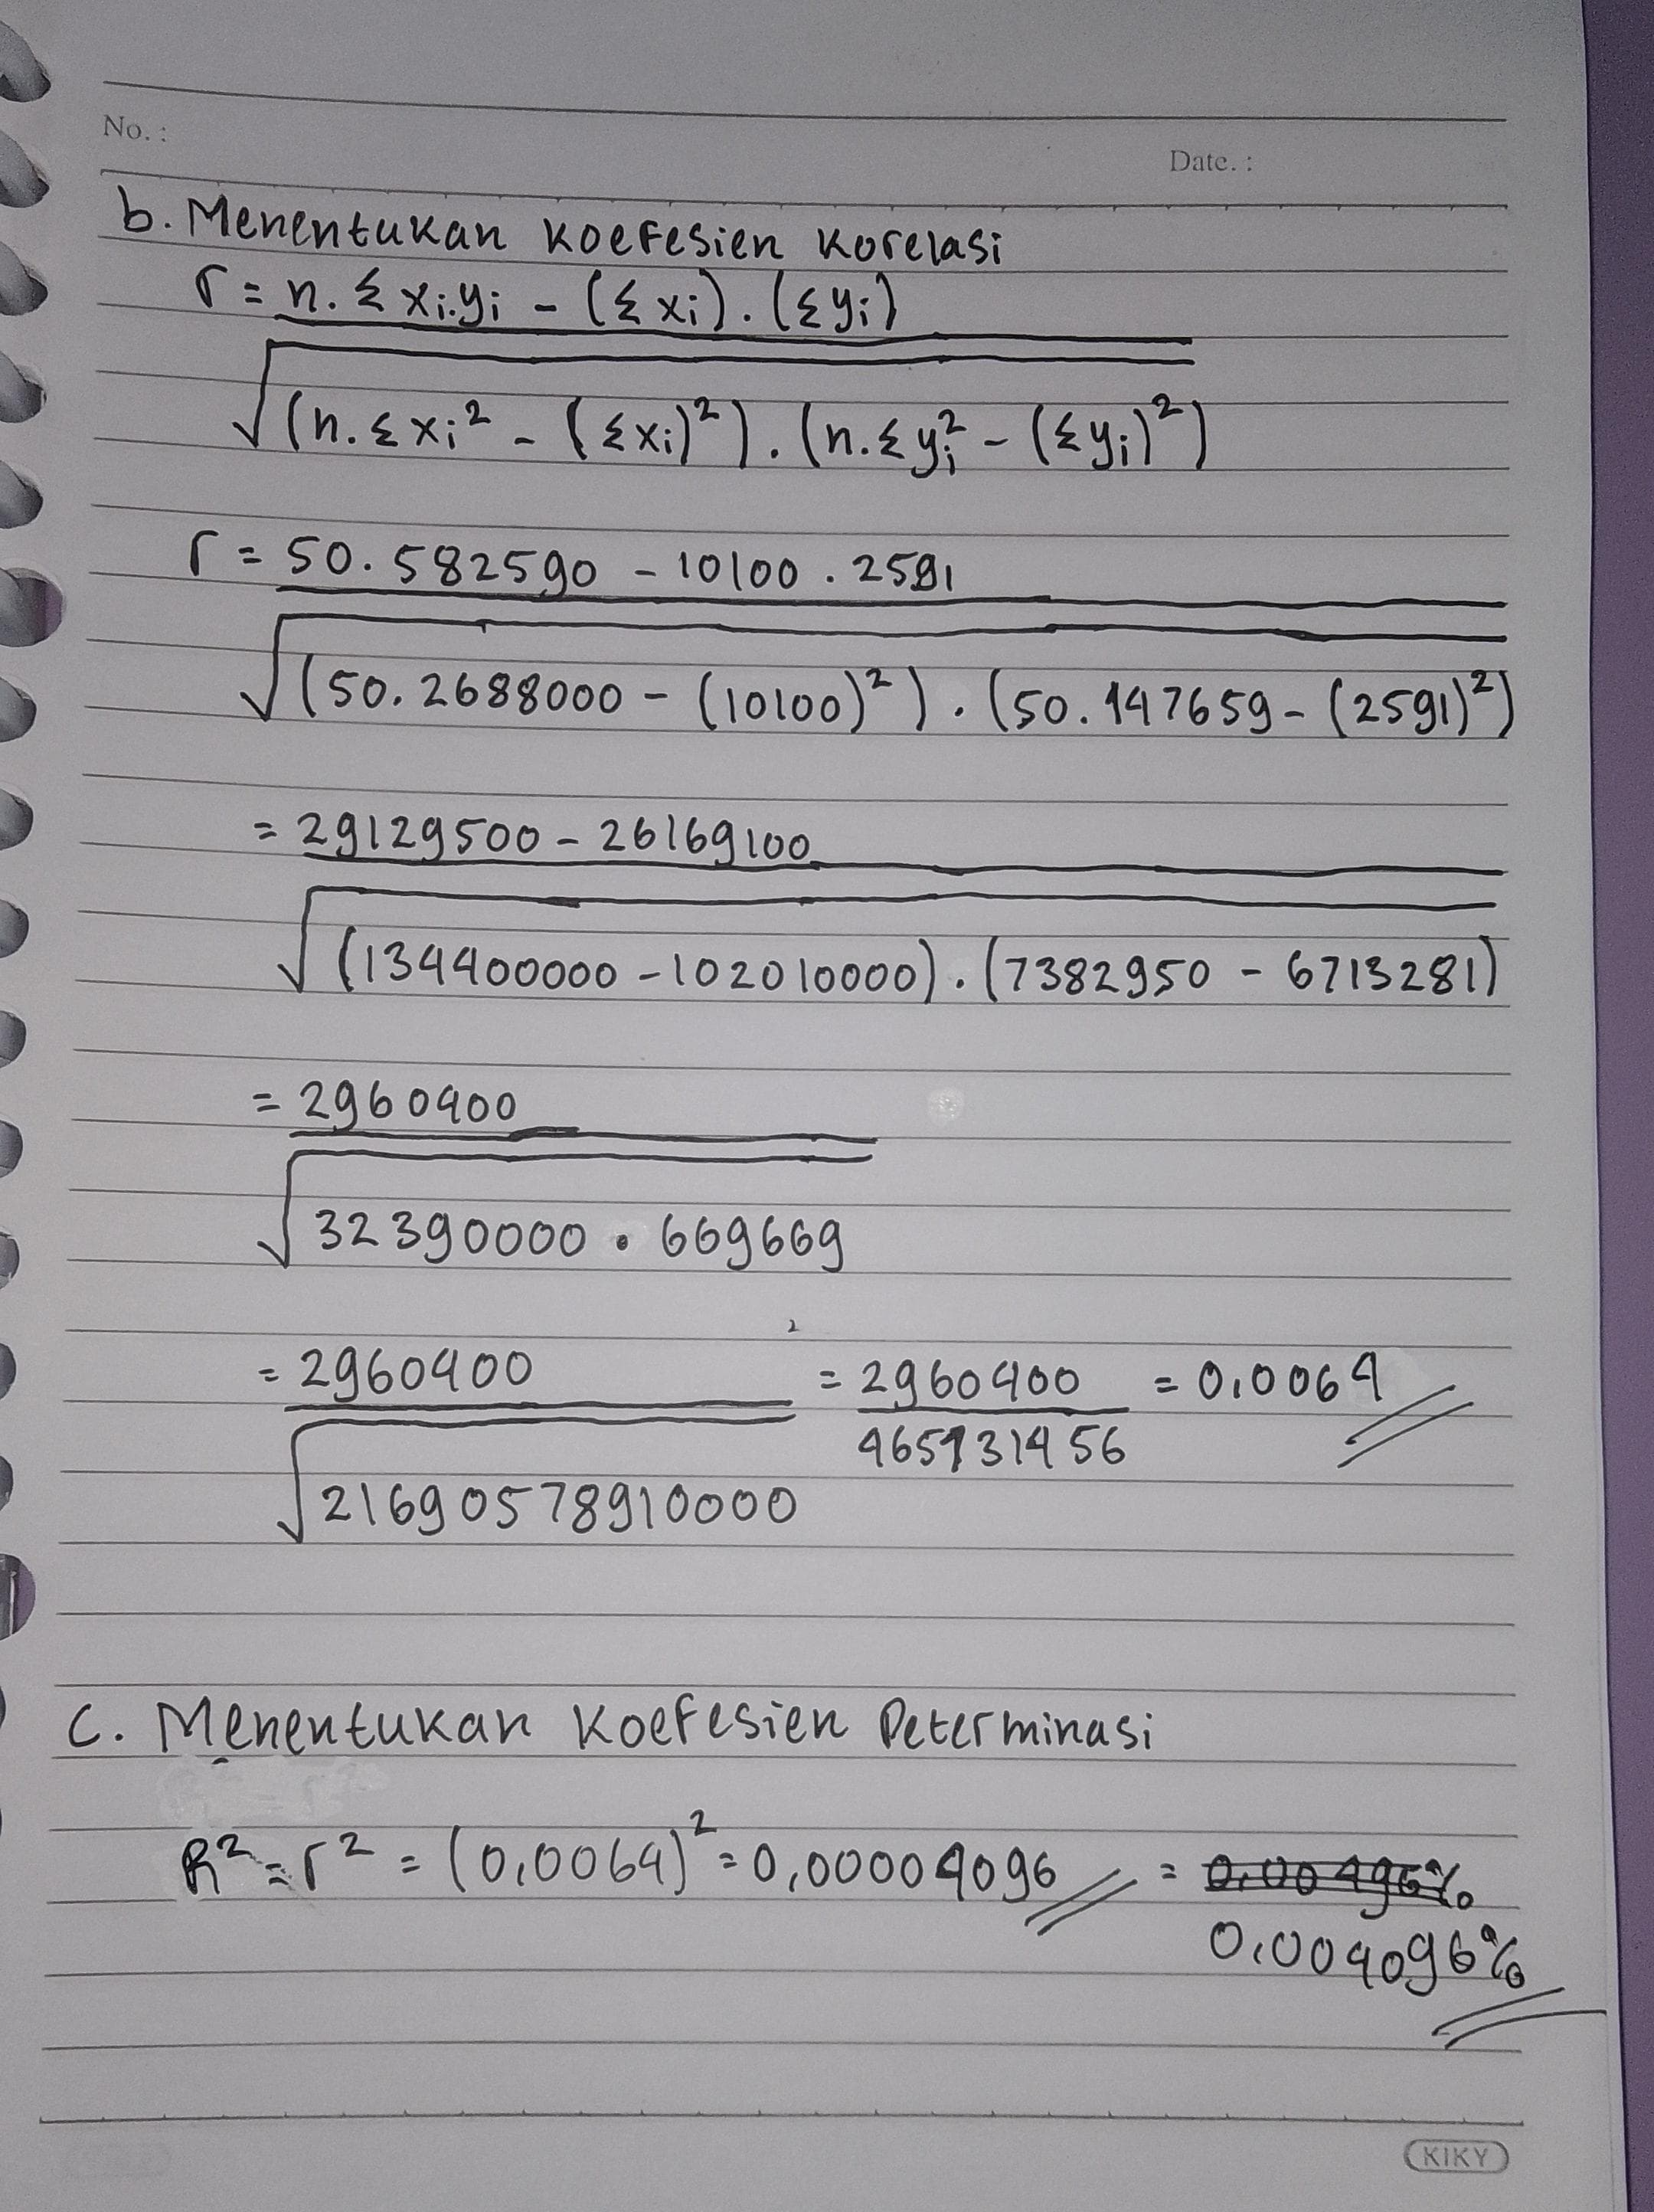 No. :
Date. :
b. Menentukan koefesien korelasi
r = n. Σ xi.yi - (Σ xi) . (Σ yi)
√(n. Σ xi² - (Σxi)²) . (n. Σ yi² - (Σyi)²)
r = 50. 582590 - 10100 . 2591
√(50. 2688000 - (10100)²) . (50. 147659 - (2591)²)
= 29129500 - 26169100
√(134400000 - 102010000) . (7382950 - 6713281)
= 2960400
√32390000 . 669669
= 2960400 = 2960400 = 0,0064
√21690578910000 465731456
c. Menentukan Koefesien Determinasi
R² = r² = (0,0064)² = 0,00004096 =
0,004096%
KIKY